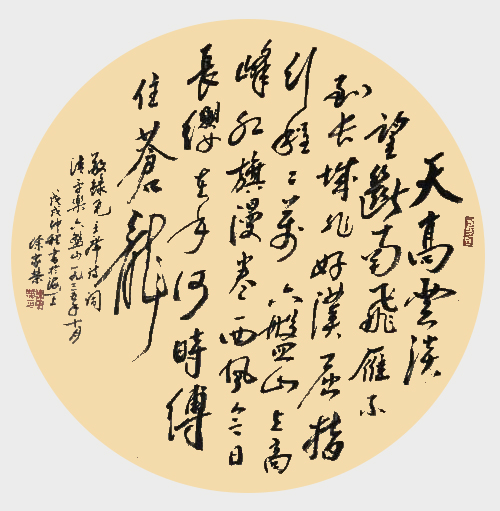 天高雲淡
望斷南飛雁不
到长城非好漢屈指
行程二萬六盤山上高
峰红旗漫卷西风今日
長纓在手何時縛
住蒼龍
敬錄毛主席诗词
清平樂六盤山一九三五年十月
戊戌仲秋書於海上
徐